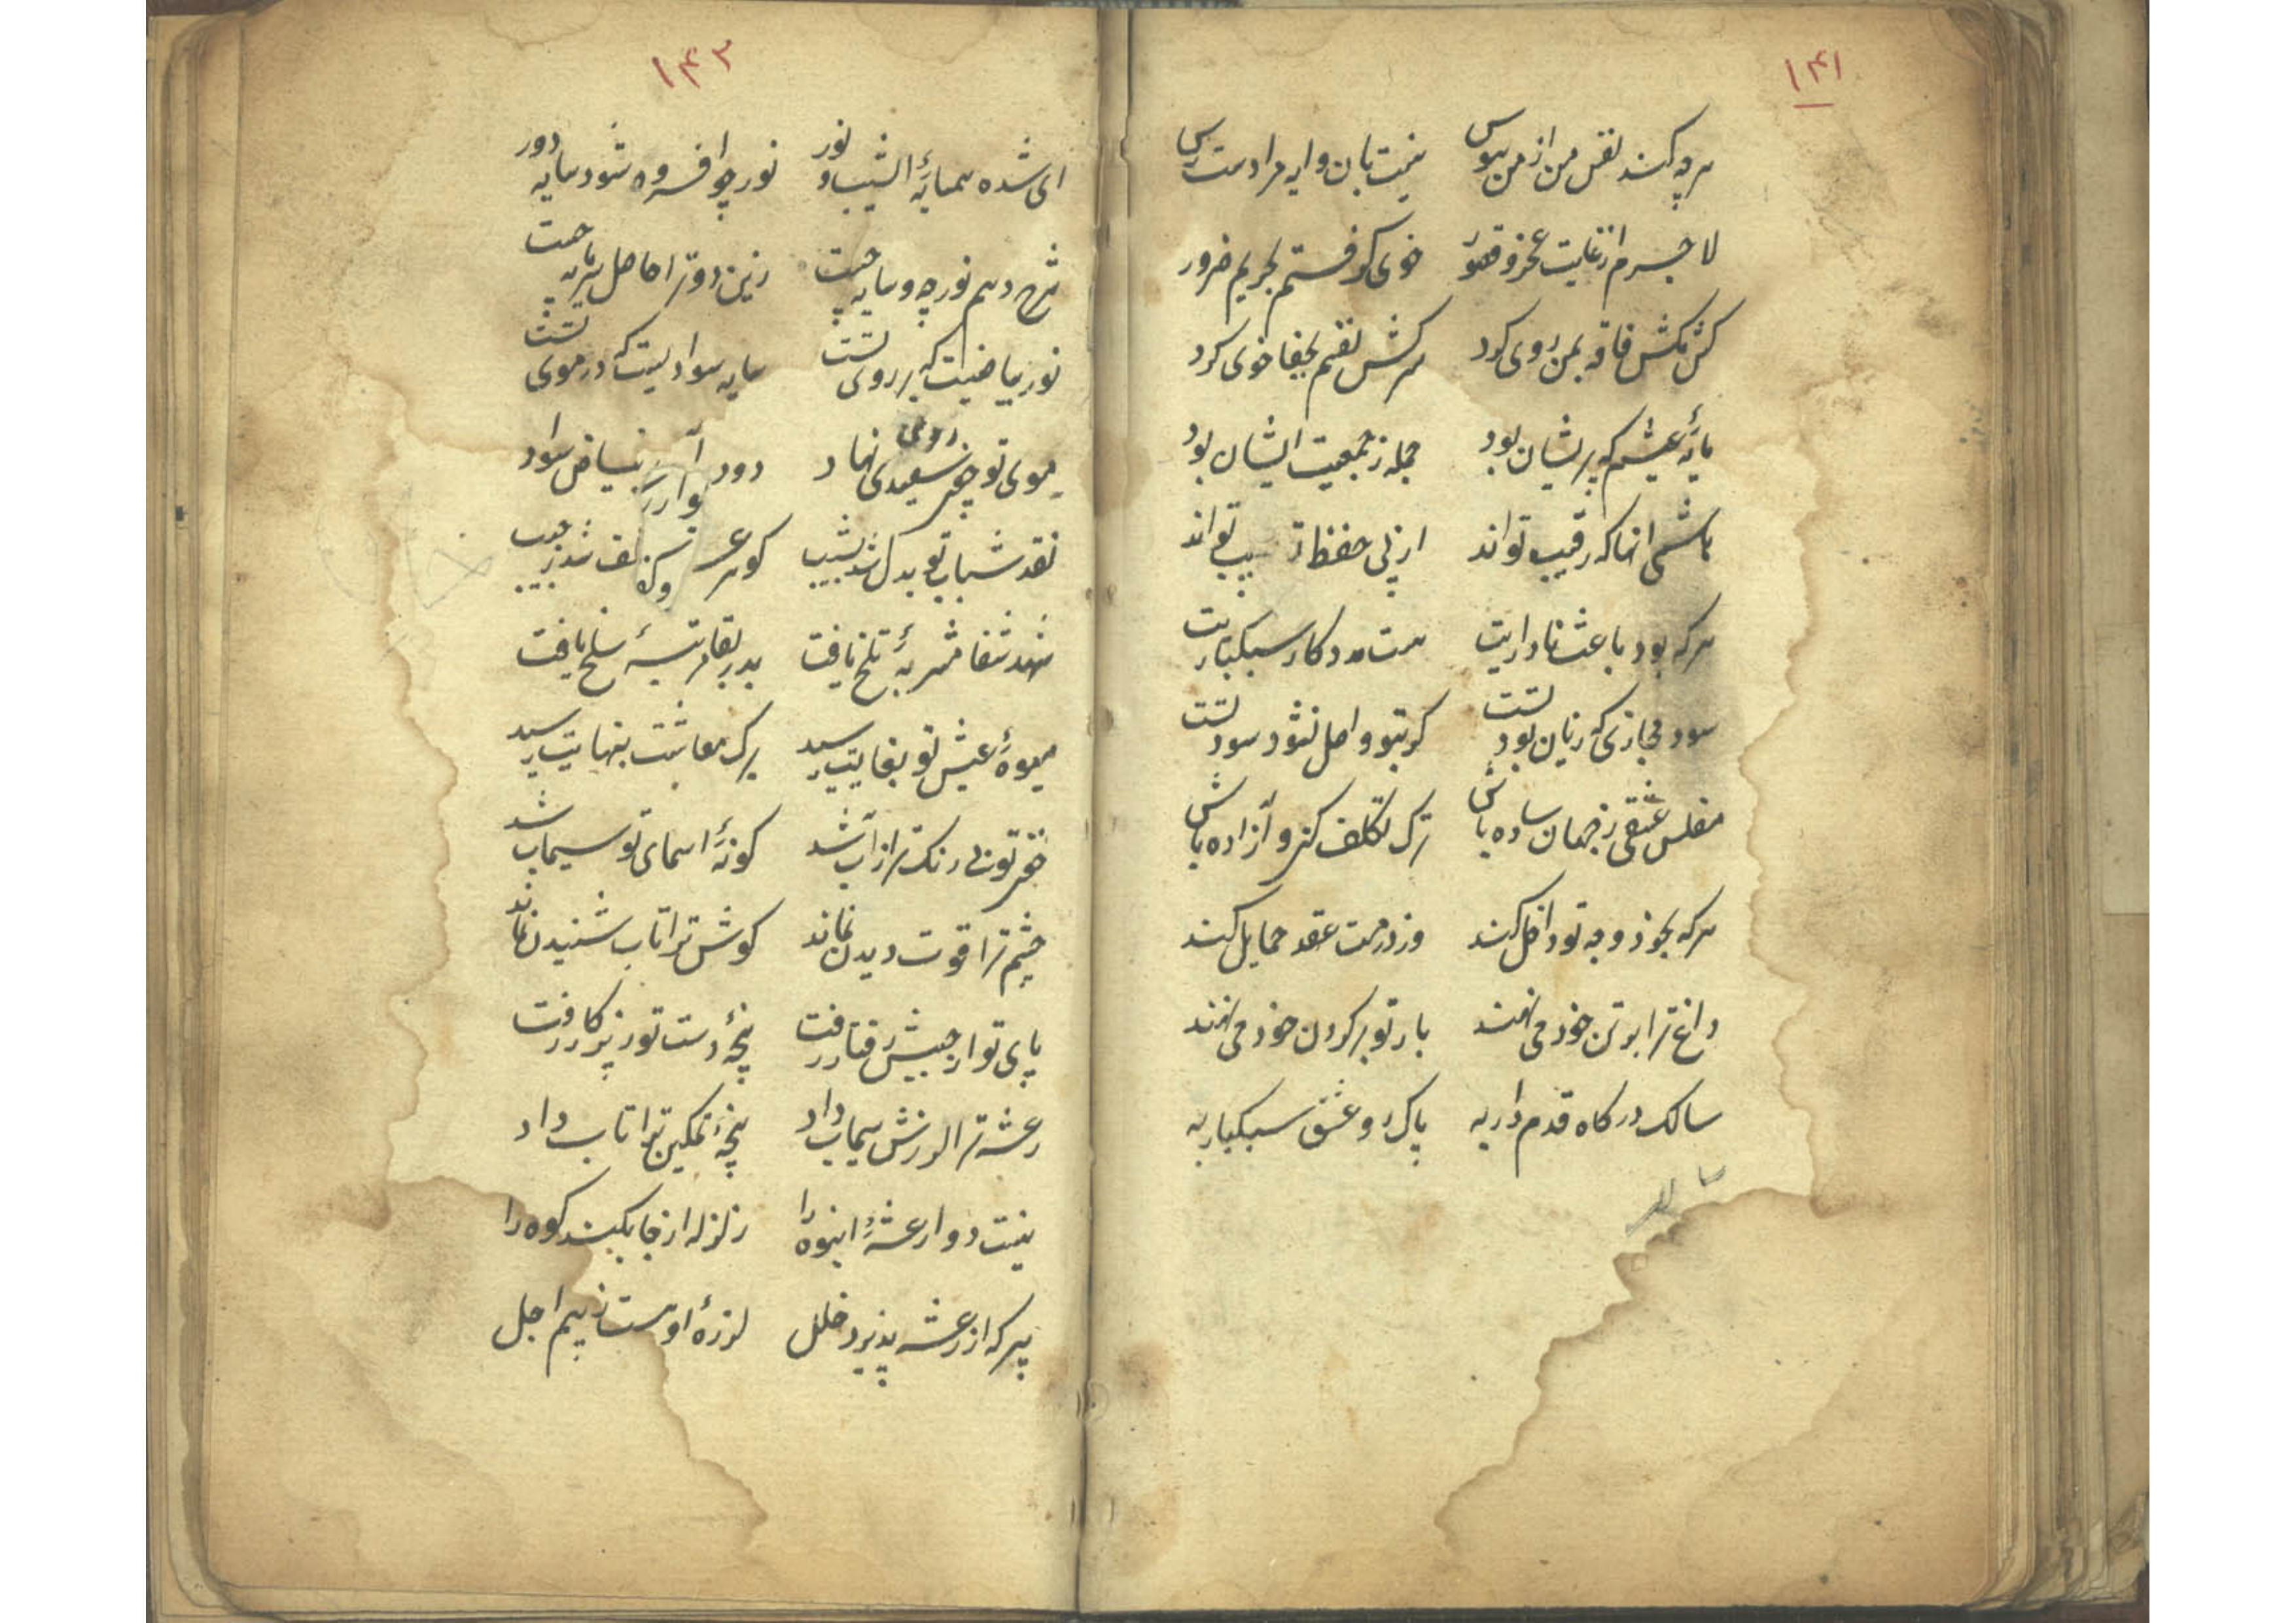 ۱۴۱
هرچه کند نفس من از من هوس نیست بآن دایه مرا دست رس
لا جرم از غایت عجز و قصور خوی گرفتم بجریم ضرور
کش مکش فاقه بمن روی کرد سرکش نفسم بجفا خوی کرد
مایهٔ عیشم که پریشان بود جمله ز جمعیت ایشان بود
هاشمی انها که رقیب تواند از پی حفظ تو سبب تواند
هرکه بود باعث ناداریت هست مددکار سبکباریت
سود مجازی که زیان بود تست کر بتو واصل نشود سود تست
مفلس عشقی ز جهان ساده باش ترک تکلف کن و آزاده باش
هرکه بخود وجه تو داخل کند وز درمت عقد حمایل کند
داغ ترا بر تن خود می نهند بار تو بر کردن خود می نهند
سالک درکاه قدم دار به پاک رو عشق سبکبار به
۱۴۳
ای شده همسایهٔ الشیب نور نور چو افسرده شود سایه دور
شرح دهم نور چه و سایه چیست زین دو ترا حاصل سرمایه چیست
نور بیاضیست که بر روی تست سایه سوادیست که در موی تست
موی تو چون روی سفیدی نهاد دود بیاض سواد
نقد شباب تو بدل شد بشیب کوهر تلف شد ز جیب
شهد شفا شربهٔ تلخ یافت بدر بقا مرتبهٔ سلخ یافت
میوهٔ عیش تو بغایت رسید برک معاشت بنهایت رسید
خنجر تو بی رنک تر از آب شد کونهٔ اسمای تو سیماب شد
چشم ترا قوت دیدن نماند کوش ترا تاب شنیدن نماند
پای تو از جنبش رفتار رفت پنجهٔ دست تو نیز ز کار رفت
رعشه ترا لرزش سیماب داد پنجهٔ تمکین ترا تاب داد
نیست دوا رعشهٔ انبوه را زلزله از جا بکند کوه را
پیر که از رعشه پذیرد خلل لرزهٔ اوهست ز بیم اجل